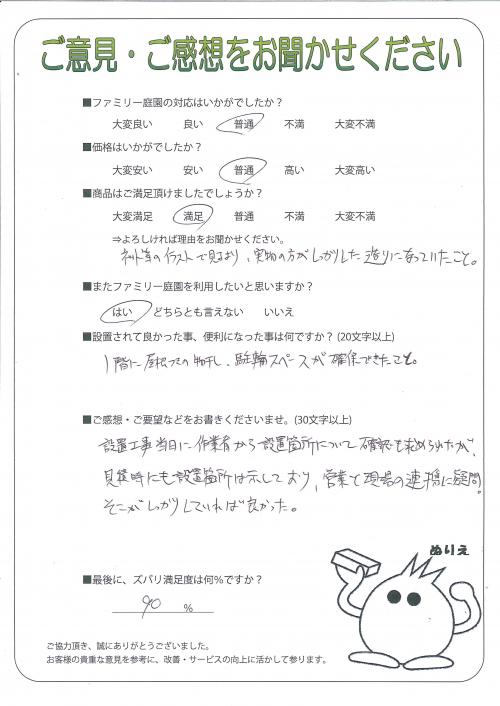 ご意見・ご感想をお聞かせください
■ファミリー庭園の対応はいかがでしたか？
大変良い 良い 普通 不満 大変不満
■価格はいかがでしたか？
大変安い 安い 普通 高い 大変高い
■商品はご満足頂けましたでしょうか？
大変満足 満足 普通 不満 大変不満
⇒よろしければ理由をお聞かせください。
ネット等のイラストで見るより、実物の方がしっかりした造りになっていたこと。
■またファミリー庭園を利用したいと思いますか？
はい どちらとも言えない いいえ
■設置されて良かった事、便利になった事は何ですか？(20文字以上)
1階に屋根つきの物干し、駐輪スペースが確保できたこと。
■ご感想・ご要望などをお書きくださいませ。(30文字以上)
設置工事当日に作業者から設置箇所について確認も求められたが、
見積時にも設置箇所は示しており、営業と現場の連携に疑問。
そこがしっかりしていれば良かった。
ぬりえ
■最後に、ズバリ満足度は何％ですか？
90 ％
ご協力頂き、誠にありがとうございました。
お客様の貴重な意見を参考に、改善・サービスの向上に活かして参ります。